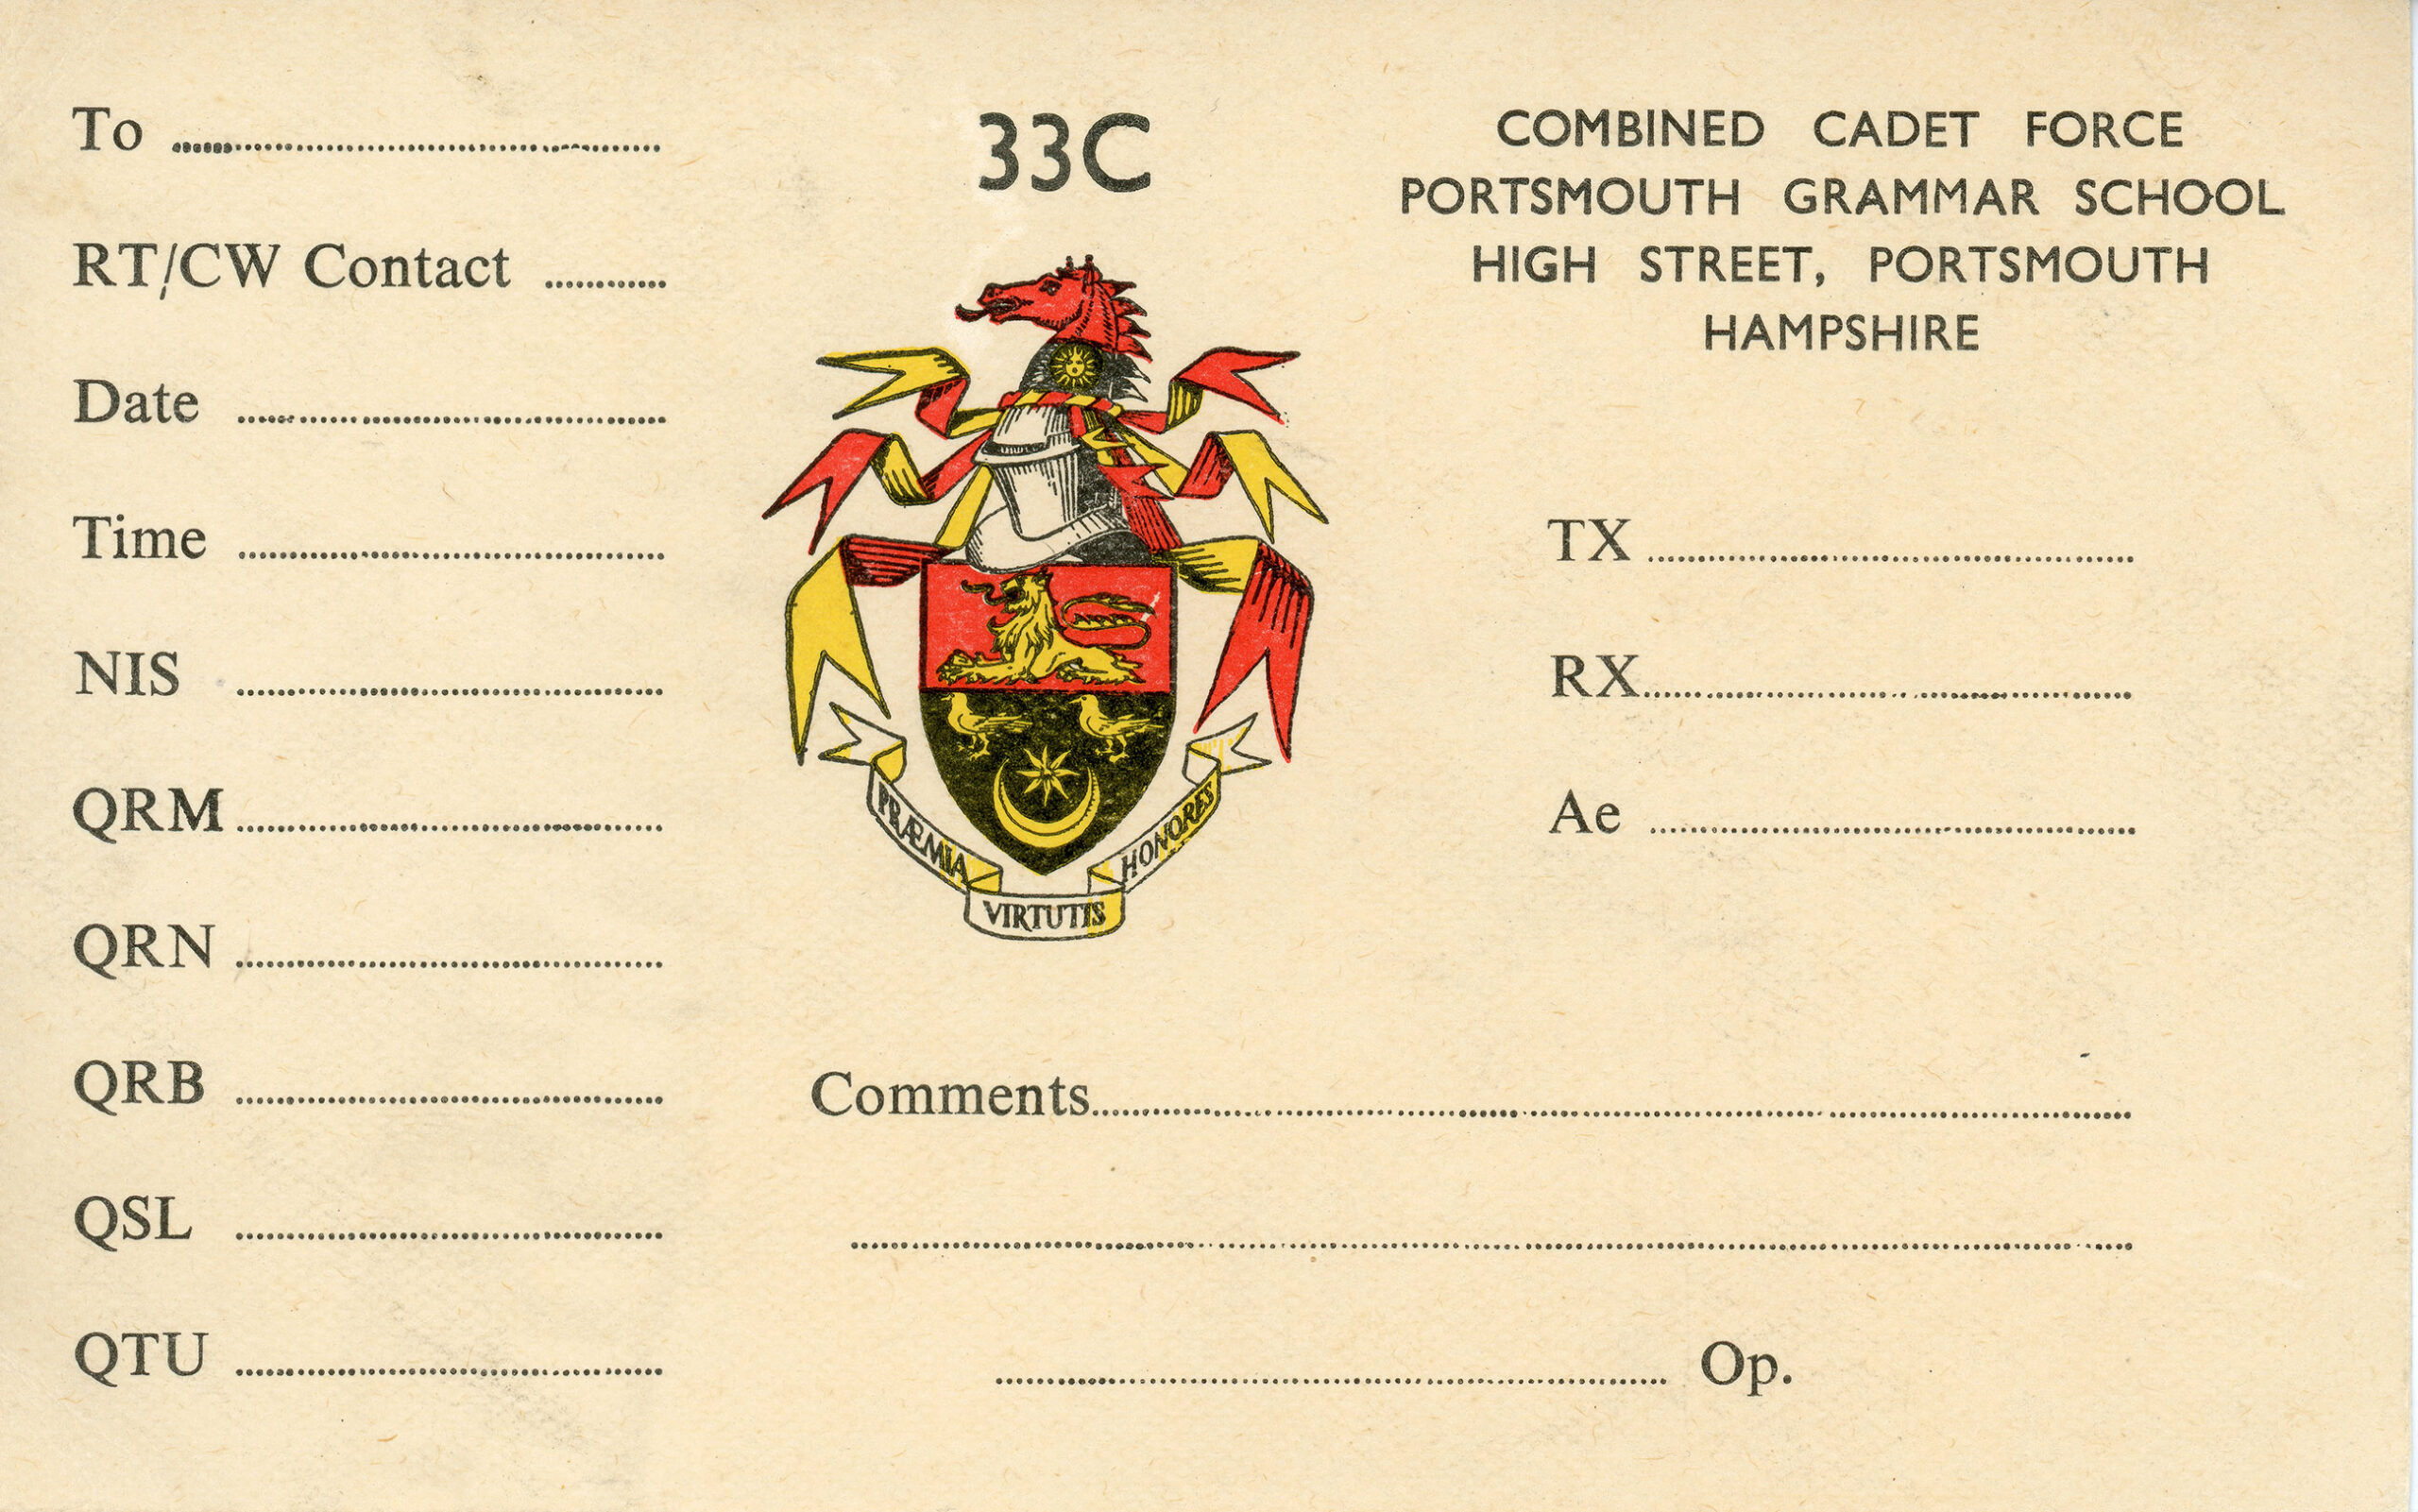 To
RT/CW Contact
Date
Time
NIS
QRM
QRN
QRB
QSL
QTU
33C
PRÆMIA
VIRTUTIS
HONORES
COMBINED CADET FORCE
PORTSMOUTH GRAMMAR SCHOOL
HIGH STREET, PORTSMOUTH
HAMPSHIRE
TX
RX
Ae
Comments
Op.